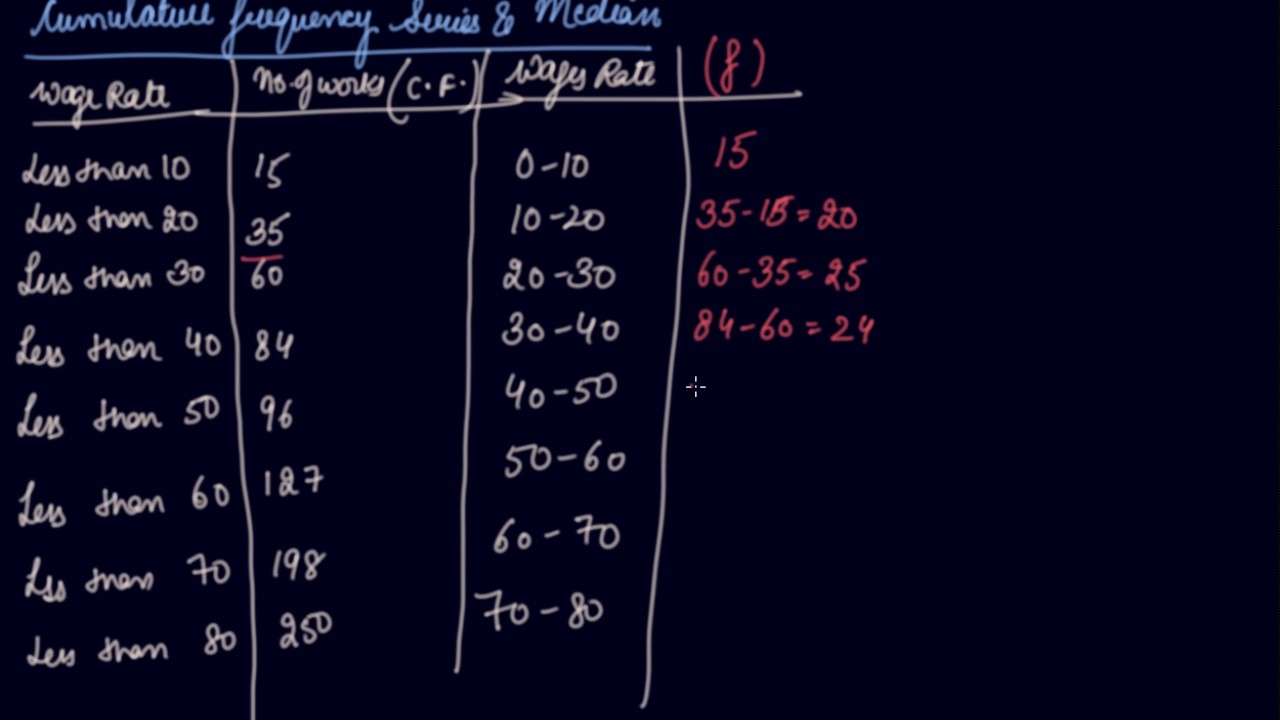 Cumulature frequency Series & Median
Wage Rate No. of works (C.F.) Wages Rate (f)
Less than 10 15 0-10 15
Less then 20 35 10-20 35-15=20
Less than 30 60 20-30 60-35=25
Less then 40 84 30-40 84-60=24
Less then 50 96 40-50
Less then 60 127 50-60
Less than 70 198 60-70
Less then 80 250 70-80